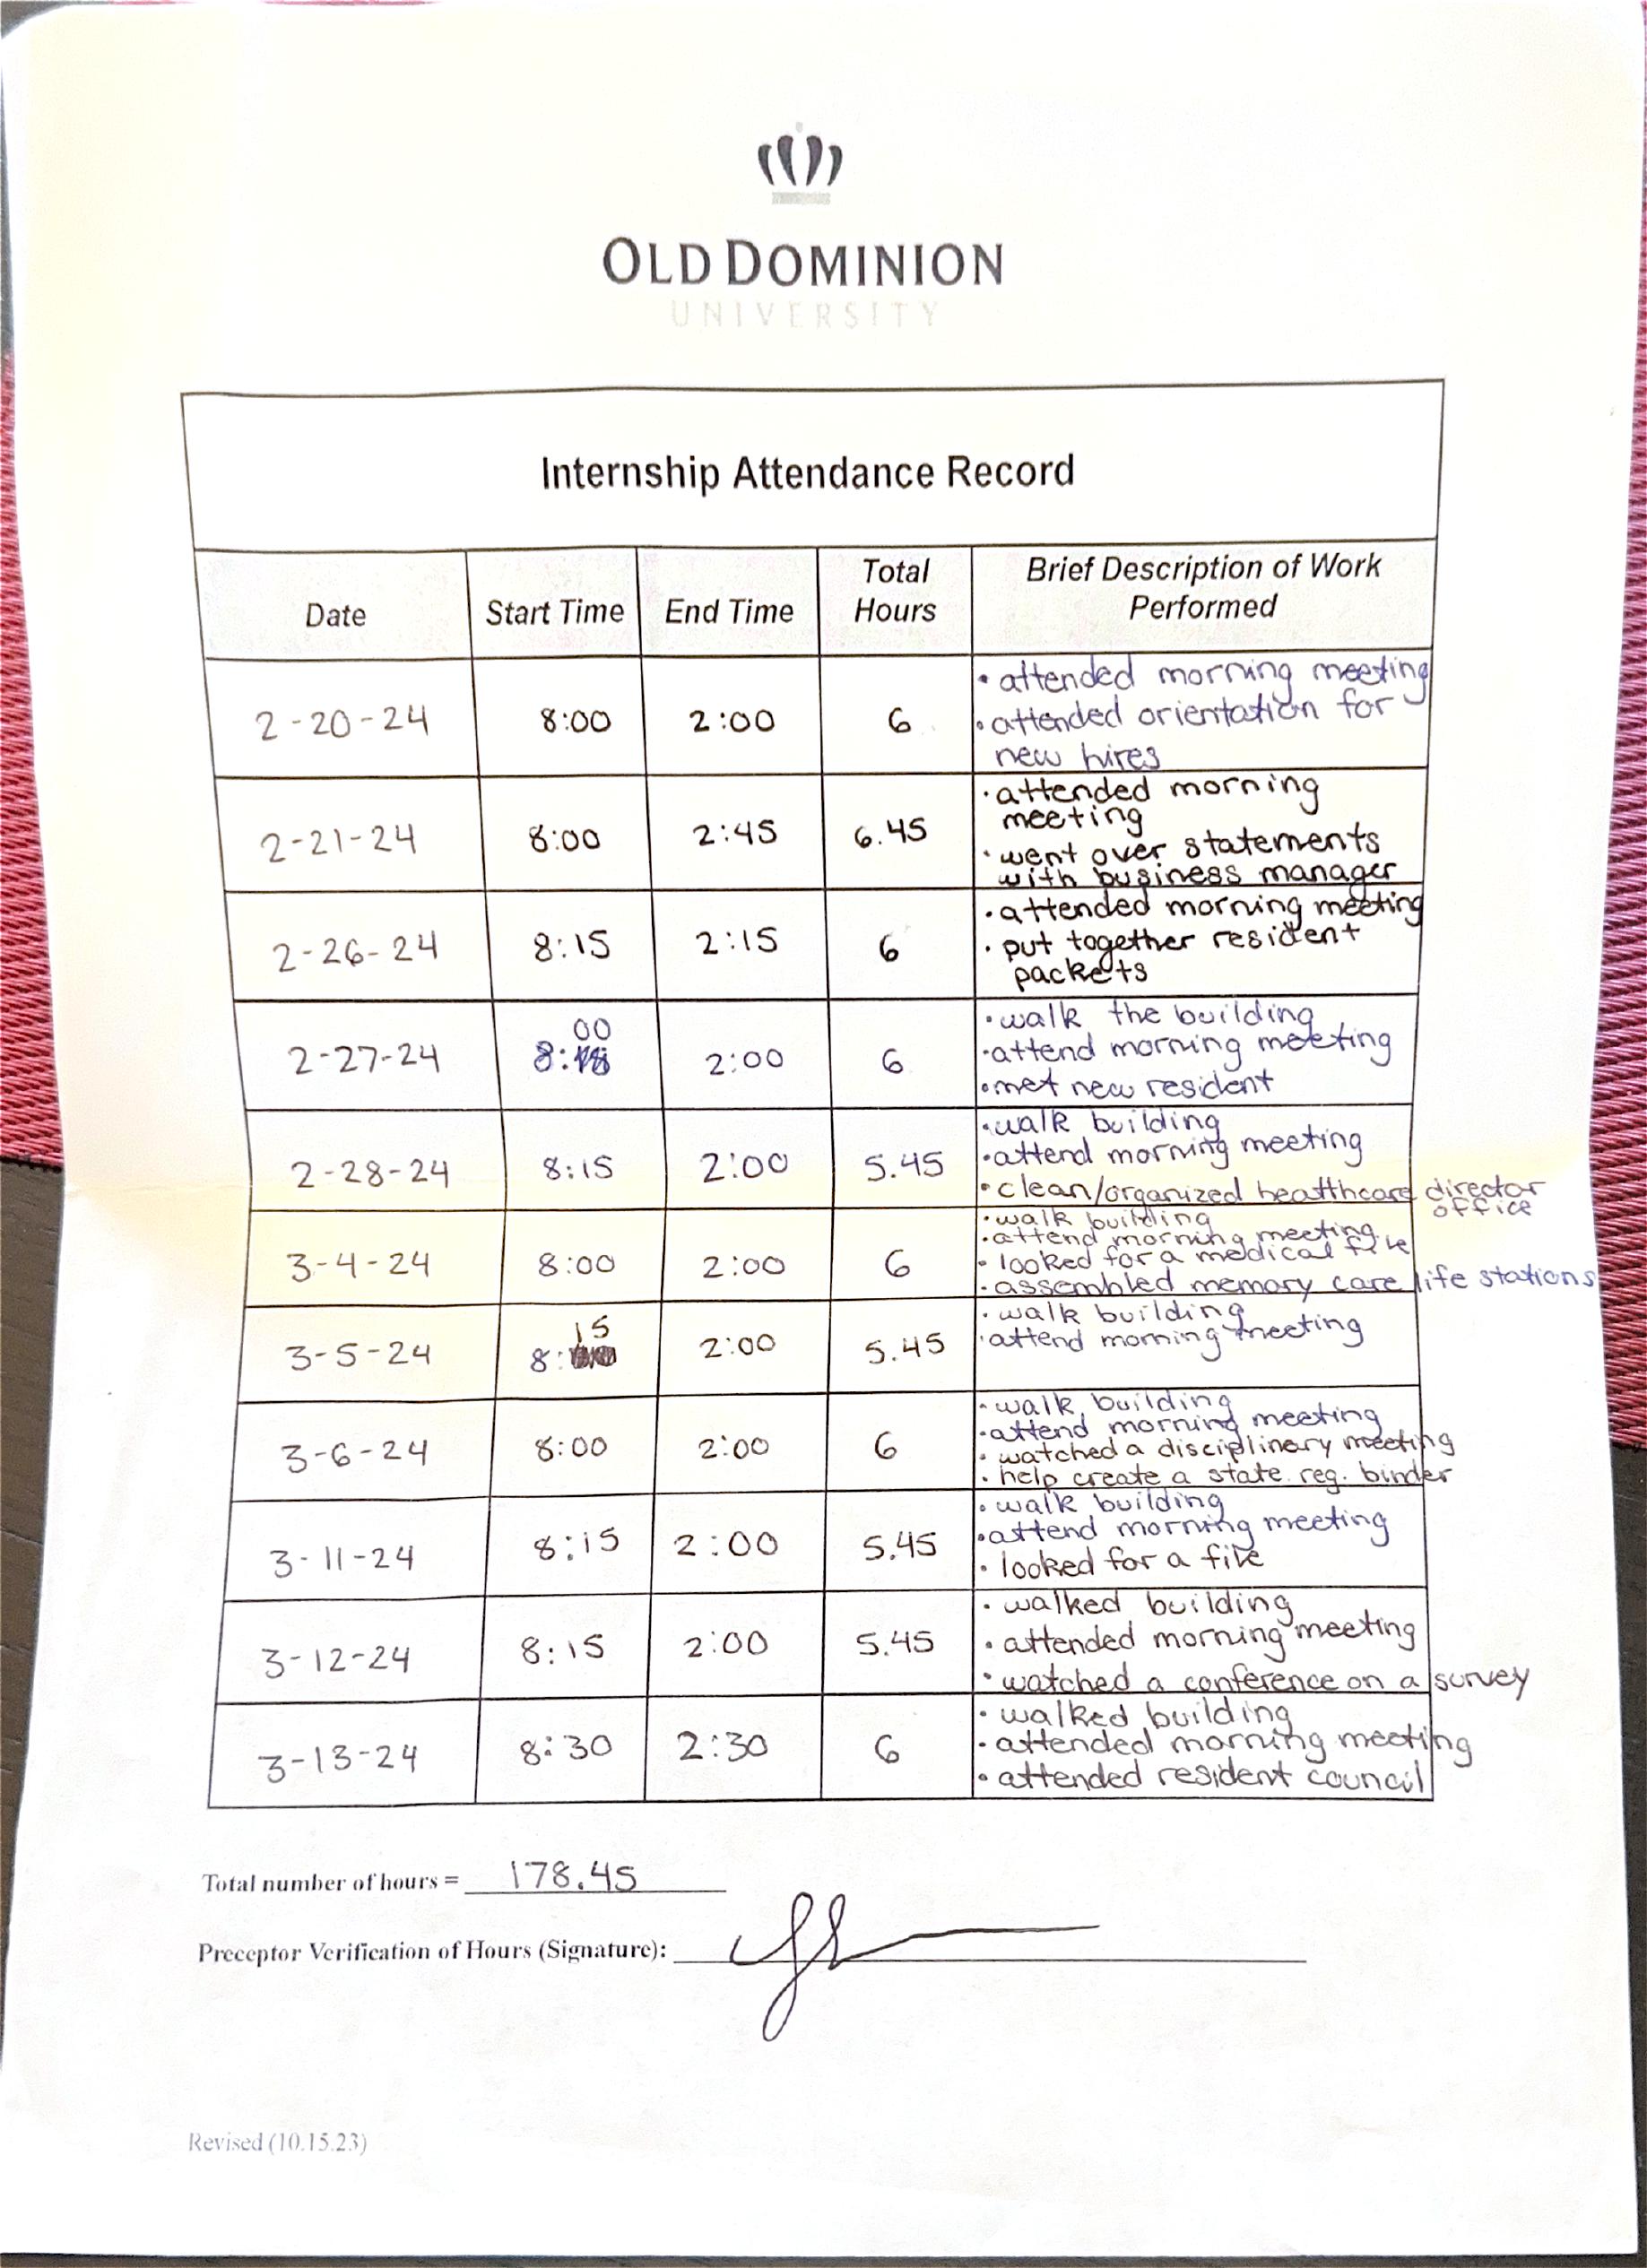 OLD DOMINION
UNIVERSITY
Internship Attendance Record
Date Start Time End Time Total Hours Brief Description of Work Performed
2-20-24 8:00 2:00 6
• attended morning meeting
• attended orientation for
new hires
2-21-24 8:00 2:45 6.45
• attended morning
meeting
• went over statements
with business manager
2-26-24 8:15 2:15 6
• attended morning meeting
• put together resident
packets
2-27-24 8:00 2:00 6
• walk the building
• attend morning meeting
• met new resident
2-28-24 8:15 2:00 5.45
• walk building
• attend morning meeting
• clean/organized healthcare director
office
3-4-24 8:00 2:00 6
• walk building
• attend morning meeting
• looked for a medical file
• assembled memory care life stations
3-5-24 8:15 2:00 5.45
• walk building
• attend morning meeting
3-6-24 8:00 2:00 6
• walk building
• attend morning meeting
• watched a disciplinary meeting
• help create a state reg. binder
3-11-24 8:15 2:00 5.45
• walk building
• attend morning meeting
• looked for a file
3-12-24 8:15 2:00 5.45
• walked building
• attended morning meeting
• watched a conference on a survey
3-13-24 8:30 2:30 6
• walked building
• attended morning meeting
• attended resident council
Total number of hours = 178.45
Preceptor Verification of Hours (Signature):
Revised (10.15.23)